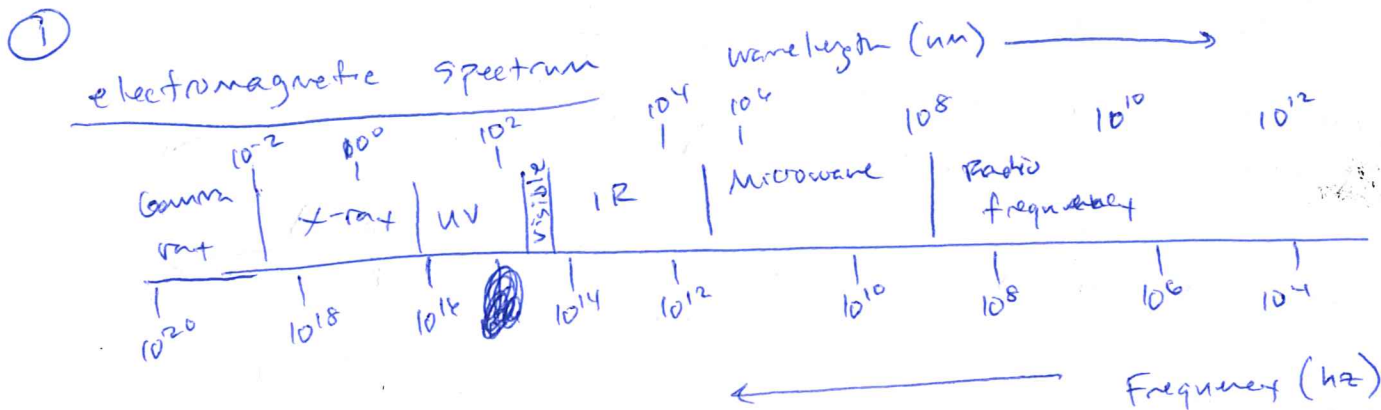 ①
wavelength (nm)
electromagnetic spectrum
10⁻² 10⁰ 10² 10⁴ 10⁶ 10⁸ 10¹⁰ 10¹²
Gamma ray X-ray UV visible IR Microwave Radio frequency
10²⁰ 10¹⁸ 10¹⁶ 10¹⁴ 10¹² 10¹⁰ 10⁸ 10⁶ 10⁴
Frequency (hz)